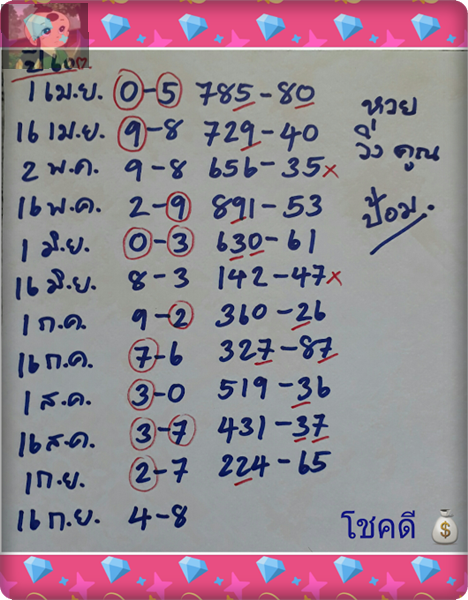 ปี ๒๓
1 เม.ย. 0-5 785-80
16 เม.ย. 9-8 729-40
2 พ.ค. 9-8 656-35x
16 พ.ค. 2-9 891-53
1 มิ.ย. 0-3 630-61
16 มิ.ย. 8-3 142-47x
1 ก.ค. 9-2 360-26
16 ก.ค. 7-6 327-87
1 ส.ค. 3-0 519-36
16 ส.ค. 3-7 431-37
1 ก.ย. 2-7 224-65
16 ก.ย. 4-8
หวย
วิ่ง คูณ
ป้อม.
โชคดี